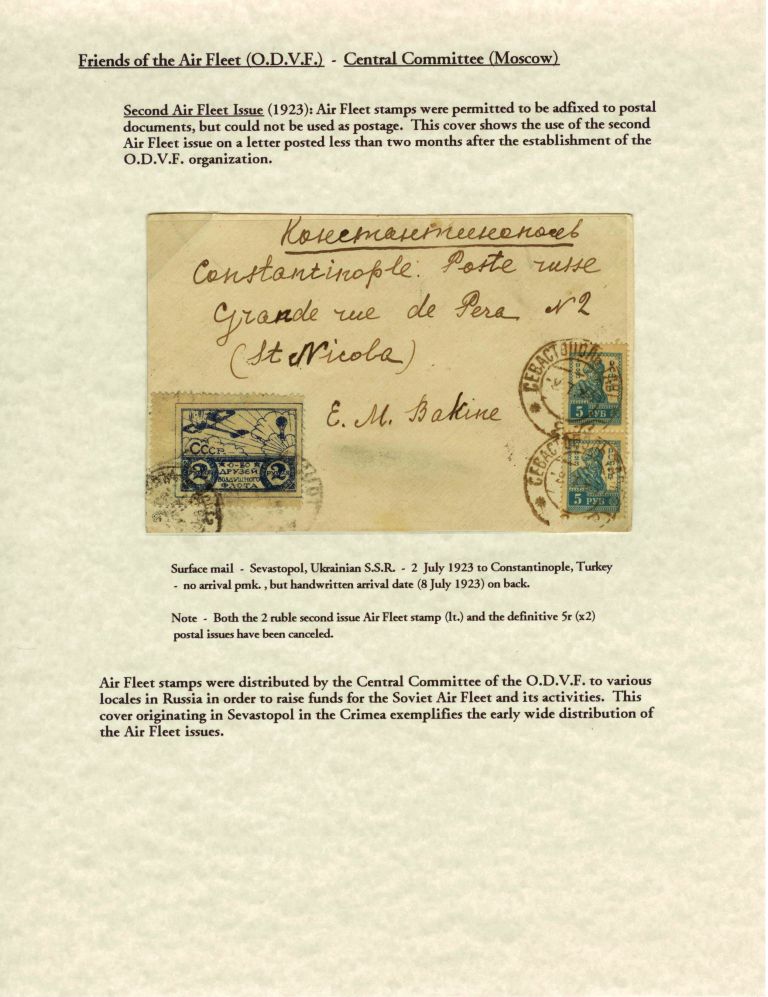 Friends of the Air Fleet (O.D.V.F.) - Central Committee (Moscow)
Second Air Fleet Issue (1923): Air Fleet stamps were permitted to be adfixed to postal
documents, but could not be used as postage. This cover shows the use of the second
Air Fleet issue on a letter posted less than two months after the establishment of the
O.D.V.F. organization.
Константинополь
Constantinople: Poste russe
Grande rue de Pera N2
(St Nicola)
E. M. Bakine
СЕВАСТОПОЛЬ
5 РУБ
СЕВАСТ
5 РУБ
СССР
О-ВО
2 ДРУЗЕЙ 2
ВОЗДУШНОГО
ФЛОТА
Surface mail - Sevastopol, Ukrainian S.S.R. - 2 July 1923 to Constantinople, Turkey
- no arrival pmk. , but handwritten arrival date (8 July 1923) on back.
Note - Both the 2 ruble second issue Air Fleet stamp (lt.) and the definitive 5r (x2)
postal issues have been canceled.
Air Fleet stamps were distributed by the Central Committee of the O.D.V.F. to various
locales in Russia in order to raise funds for the Soviet Air Fleet and its activities. This
cover originating in Sevastopol in the Crimea exemplifies the early wide distribution of
the Air Fleet issues.